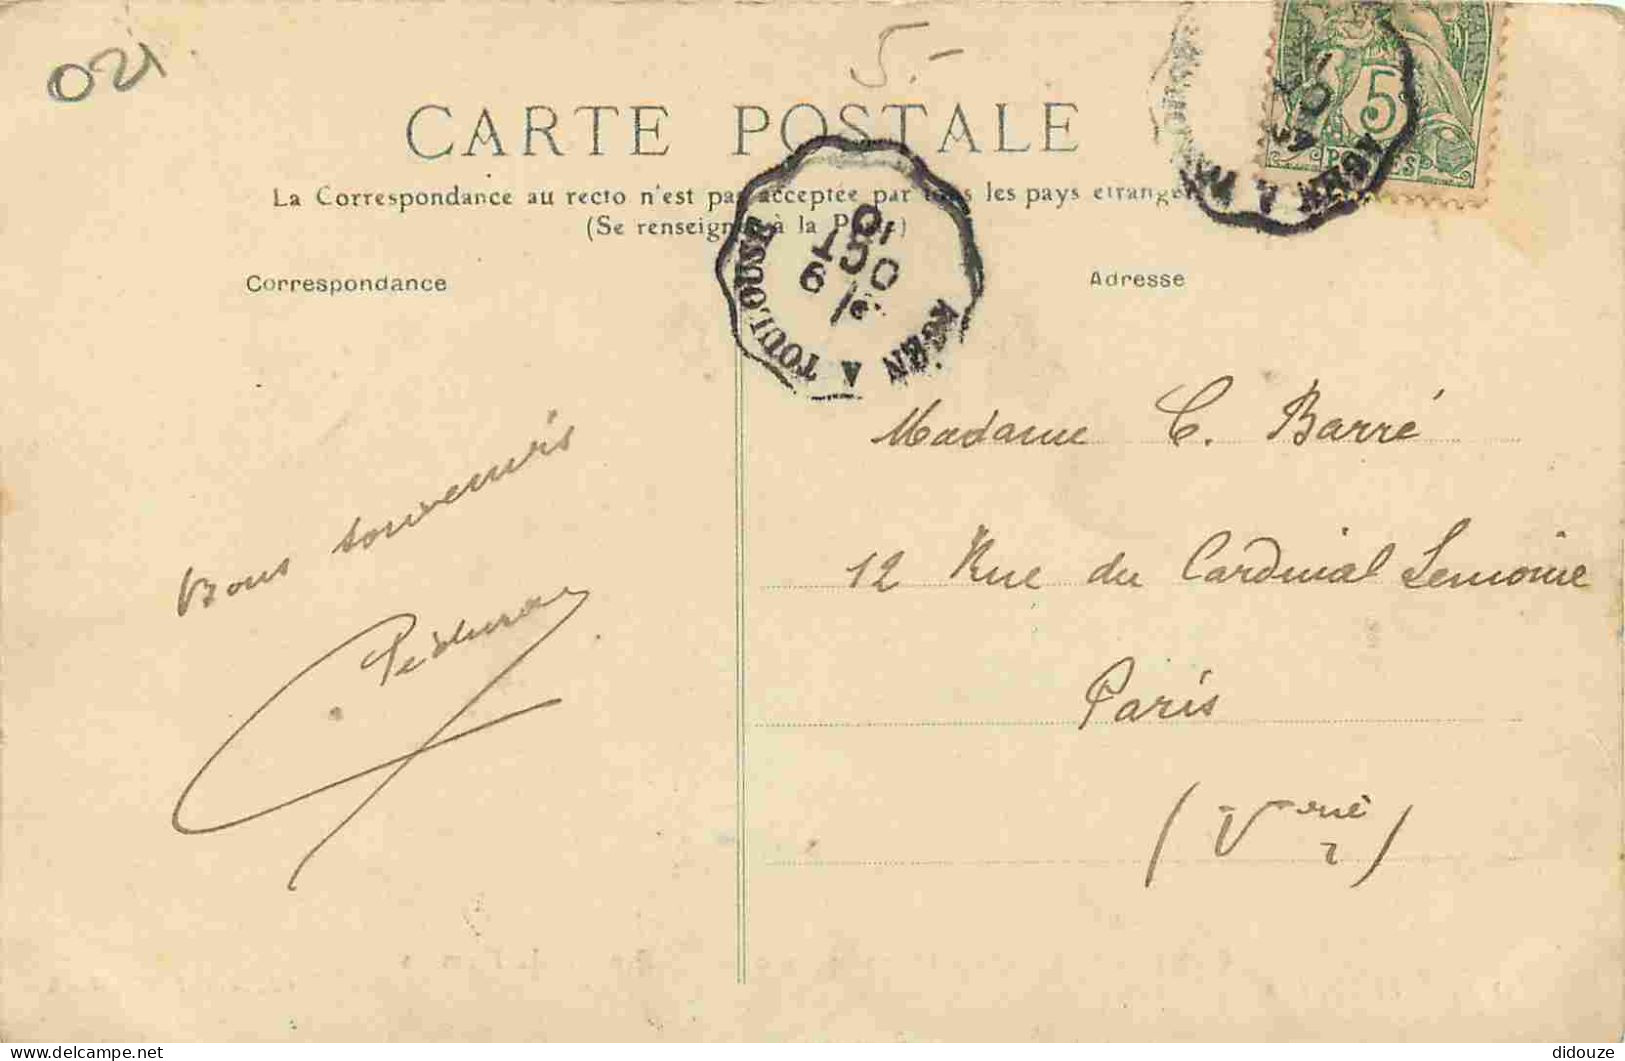 021
5.-
CARTE POSTALE
La Correspondance au recto n'est pas acceptée par tous les pays etrangers
(Se renseigner à la Poste)
Correspondance
Adresse
5
AGEN A TOULOUSE
OCT
AGEN A
Bons souvenirs
Madame C. Barré
12 Rue du Cardinal Lemoine
Paris
(Vème)
delcampe.net
didouze